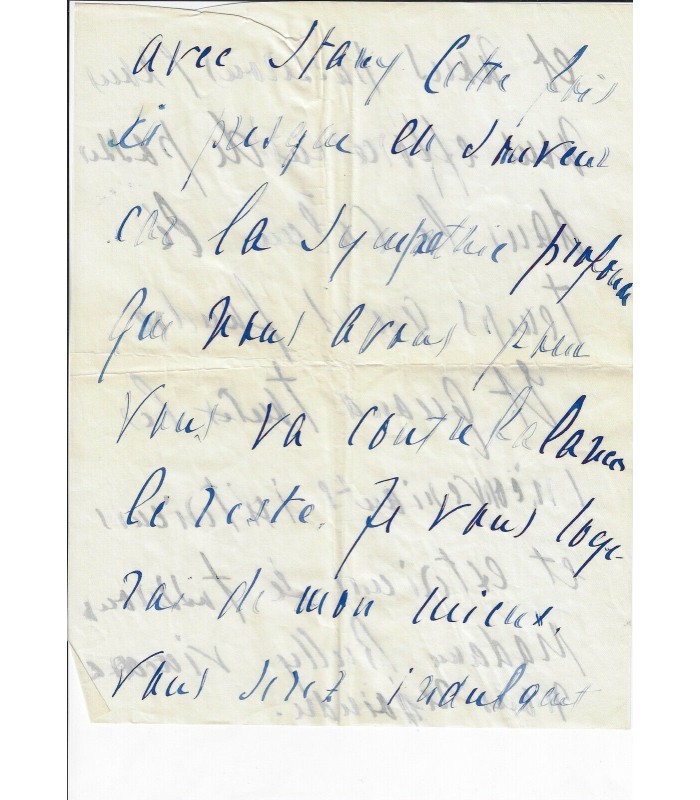 avec Stany cette fois
ci presque en souvent
car la sympathie profonde
que nous avons pour
vous va contre balancer
le reste. Je vous loge-
rai de mon mieux.
vous serez indulgent